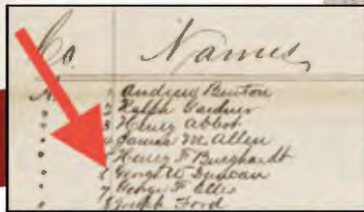 Co. Names
1 Andrew Benton
2 Ralph Gardner
3 Henry Abbot
4 James M. Allen
Henry F Burghardt
6 George W Duncan
7 F Ellis
8 Joseph Ford